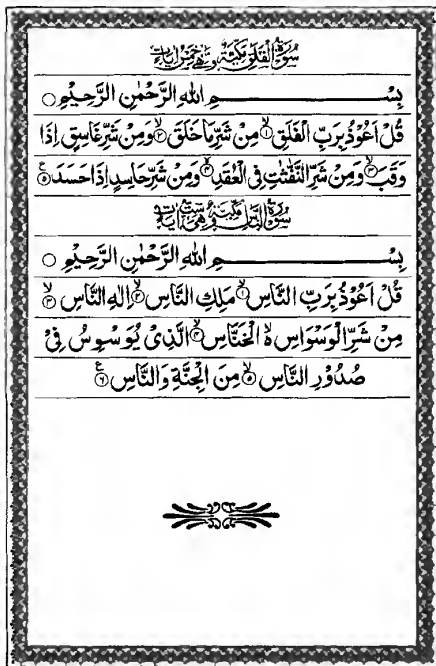 سُوْرَةُ الْفَلَقِ مَكِّيَّةٌ وَّهِیَ خَمْسُ اٰیَاتٍ
بِسْــــــــمِ اللهِ الرَّحْمٰنِ الرَّحِیْمِ ○
قُلْ اَعُوْذُ بِرَبِّ الْفَلَقِ ۙ۱ مِنْ شَرِّ مَا خَلَقَ ۙ۲ وَمِنْ شَرِّ غَاسِقٍ اِذَا
وَقَبَ ۙ۳ وَمِنْ شَرِّ النَّفّٰثٰتِ فِی الْعُقَدِ ۙ۴ وَمِنْ شَرِّ حَاسِدٍ اِذَا حَسَدَ ۵ ع
سُوْرَةُ النَّاسِ مَكِّيَّةٌ وَّهِیَ سِتُّ اٰیَاتٍ
بِسْــــــــمِ اللهِ الرَّحْمٰنِ الرَّحِیْمِ ○
قُلْ اَعُوْذُ بِرَبِّ النَّاسِ ۙ۱ مَلِكِ النَّاسِ ۙ۲ اِلٰهِ النَّاسِ ۙ۳
مِنْ شَرِّ الْوَسْوَاسِ ۙ۵ الْخَنَّاسِ ۙ۴ الَّذِیْ یُوَسْوِسُ فِیْ
صُدُوْرِ النَّاسِ ۙ۵ مِنَ الْجِنَّةِ وَالنَّاسِ ۶ ع